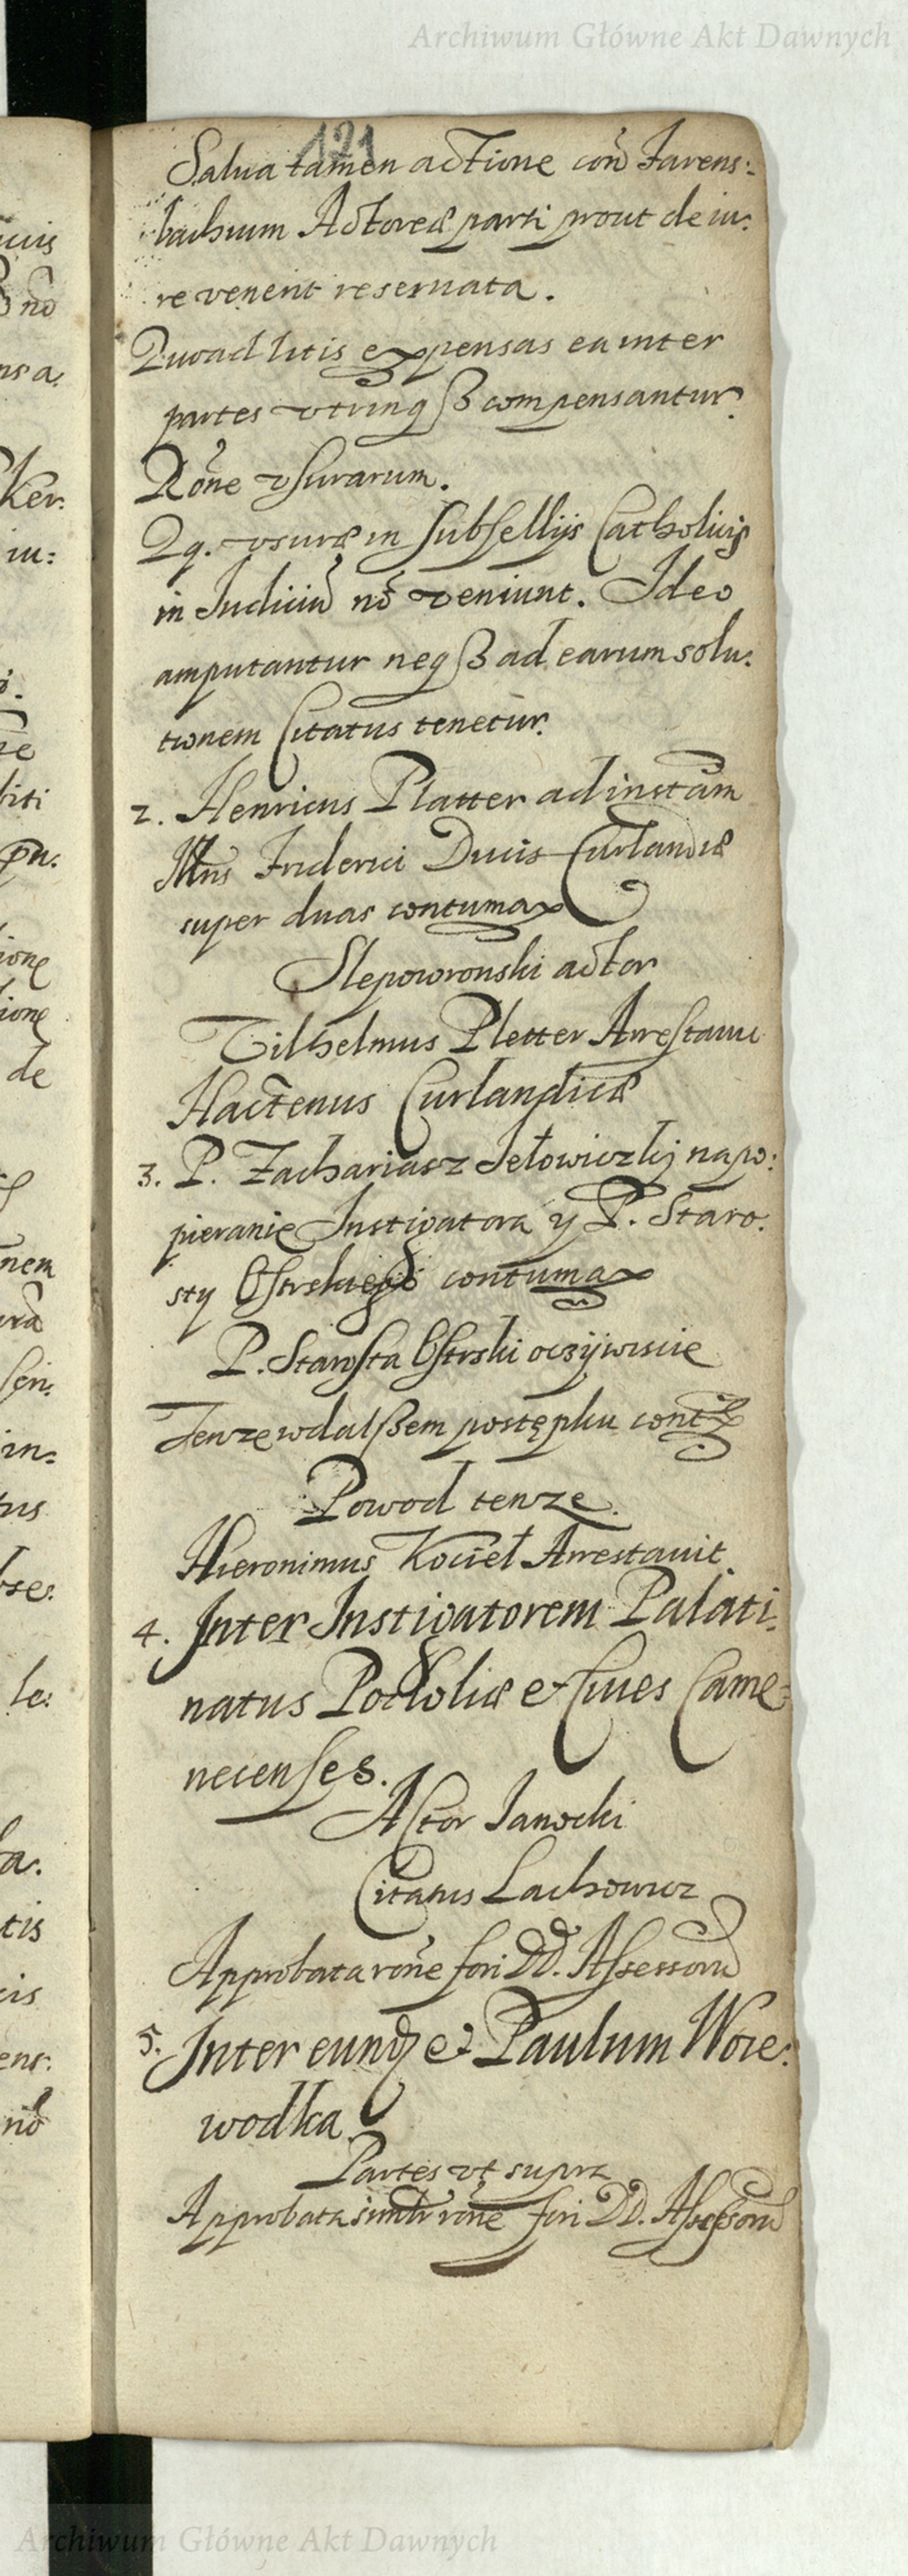 Archiwum Główne Akt Dawnych
121
Salua tamen actione con̄ Farens:
bachium Actoreæ parti prout de iu:
re venerit reseruata.
Quoad litis expensas ea inter
partes vtrinqß compensantur.
Rōne vsurarum.
Qq. vsuræ in subsellijs Catholicis
in Iudiciū nō veniunt. Ideo
amputantur neqß ad earum solu:
tionem Citatus tenetur.
2. Henricus Platter ad instam
Illms Friderici Ducis Curlandiæ
super duas contumax
Slepowronski actor
Vilhelmus Pletter Arrestauit
Hactenus Curlandicæ
3. P. Zachariasz Jełowiczkij na po:
pieranie Instigatora y P. Staro:
sty Ostrskiego contumax
P. Starosta Ostrski oczÿwiscie
Tenze w dalßem postępku cont
Powod tenze.
Hieronimus Kocieł Arrestauit
4. Inter Instigatorem Palati:
natus Podoliæ et Ciues Came:
necenses.
Actor Janocki
Citatus Lachowicz
Approbata rōne fori DD. Assessorū
5. Inter eundē et Paulum Woie:
wodka
Partes vt supra
Approbata simlr rōne fori DD. Assessorū
ucis
nō
nsa.
Ker:
iu:
ze
biti
pu.
ione
tione
de
nem
in:
tus
le:
ba.
tis
cis
ens:
nō
Archiwum Główne Akt Dawnych